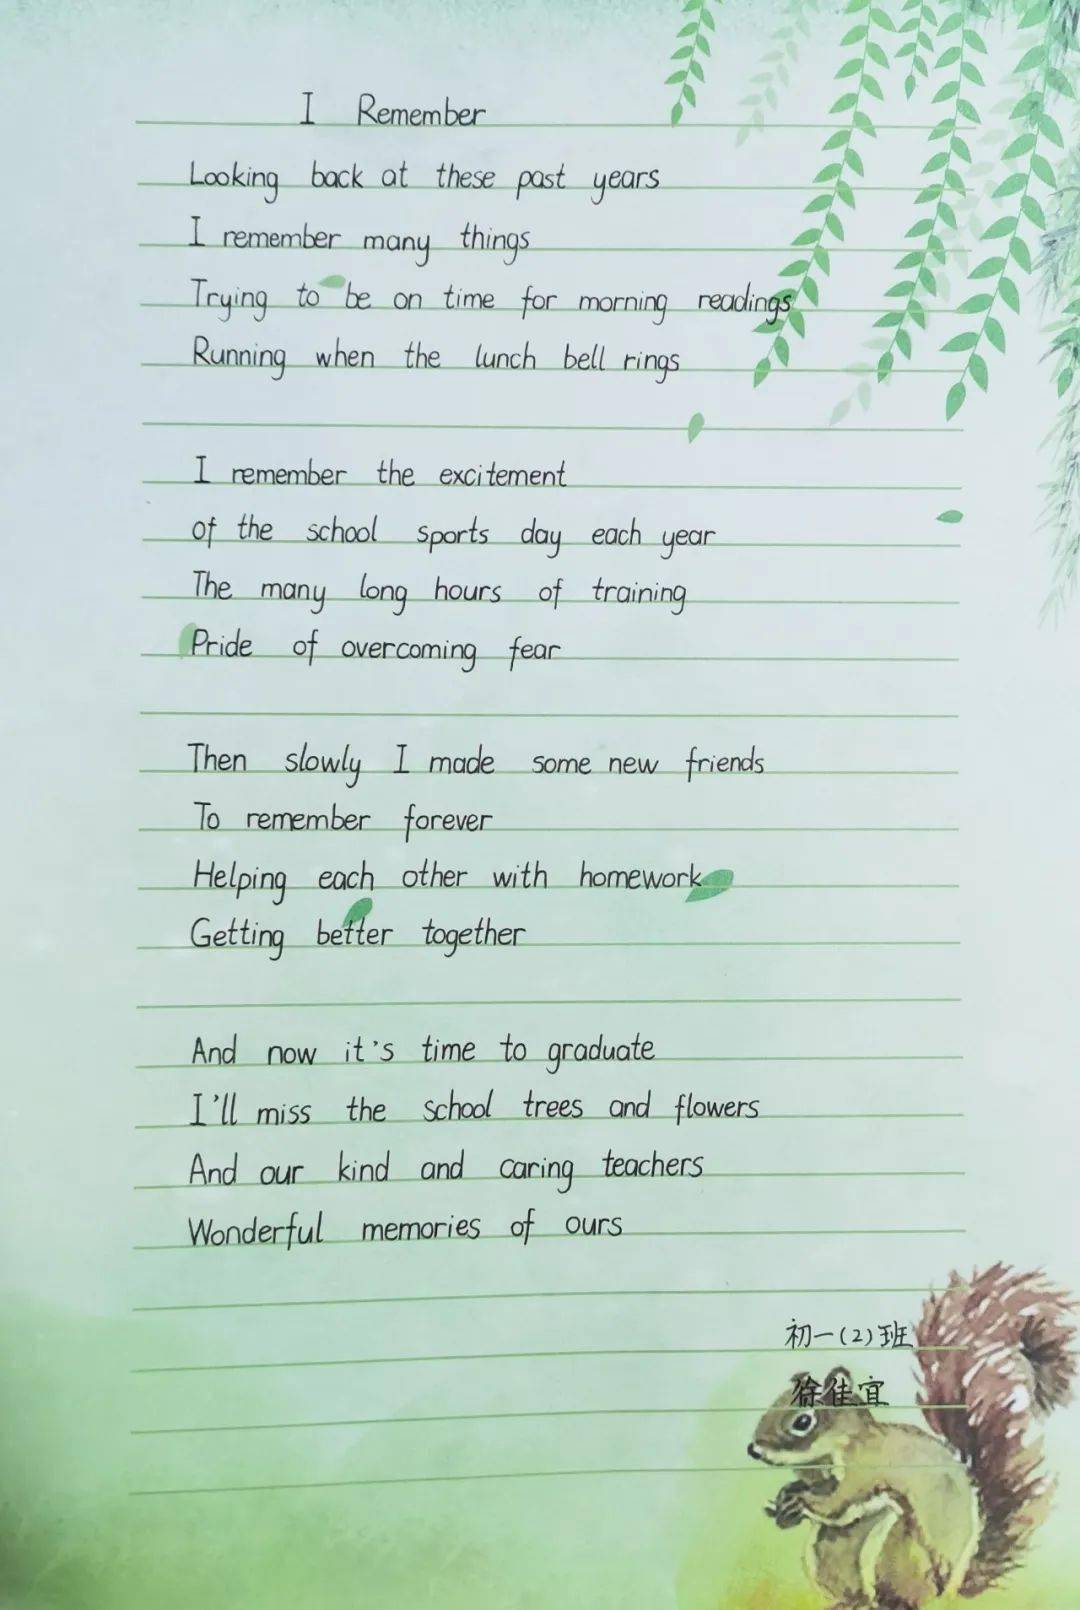 I Remember
Looking back at these past years
I remember many things
Trying to be on time for morning readings
Running when the lunch bell rings
I remember the excitement
of the school sports day each year
The many long hours of training
Pride of overcoming fear
Then slowly I made some new friends
To remember forever
Helping each other with homework
Getting better together
And now it's time to graduate
I'll miss the school trees and flowers
And our kind and caring teachers
Wonderful memories of ours
初一(2)班
徐佳宜